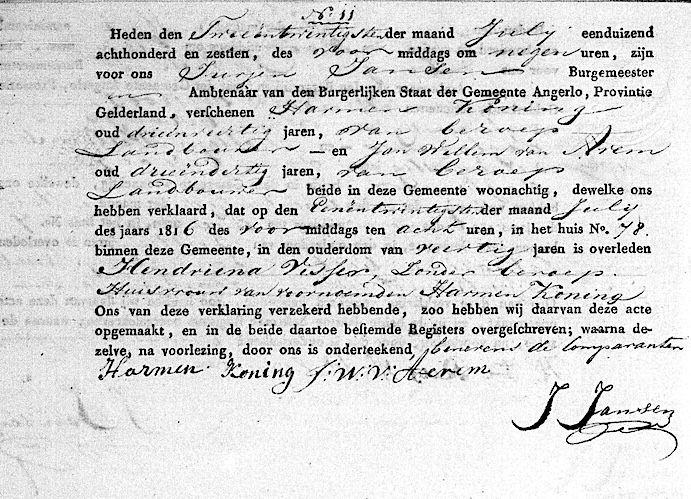 No. 11
Heden den Tweeentwintigsten der maand July eenduizend
achthonderd en zestien, des voor middags om negen uren, zijn
voor ons Jurjen Jansen Burgemeester
en Ambtenaar van den Burgerlijken Staat der Gemeente Angerlo, Provintie
Gelderland, verschenen Harmen Koning
oud drieenveertig jaren, van beroep
Landbouwer – en Jan Willem van Arem
oud drieëndertig jaren, van beroep
Landbouwer beide in deze Gemeente woonachtig, dewelke ons
hebben verklaard, dat op den Eenëntwintigsten der maand July
des jaars 1816 des voor middags ten acht uren, in het huis No. 78.
binnen deze Gemeente, in den ouderdom van veertig jaren is overleden
Hendriena Visser, Zonder beroep.
Huisvrouw van voornoemden Harmen Koning
Ons van deze verklaring verzekerd hebbende, zoo hebben wij daarvan deze acte
opgemaakt, en in de beide daartoe bestemde Registers overgeschreven; waarna de-
zelve, na voorlezing, door ons is onderteekend, benevens de Comparanten
Harmen Koning J: W: V: Aerem
J Jansen